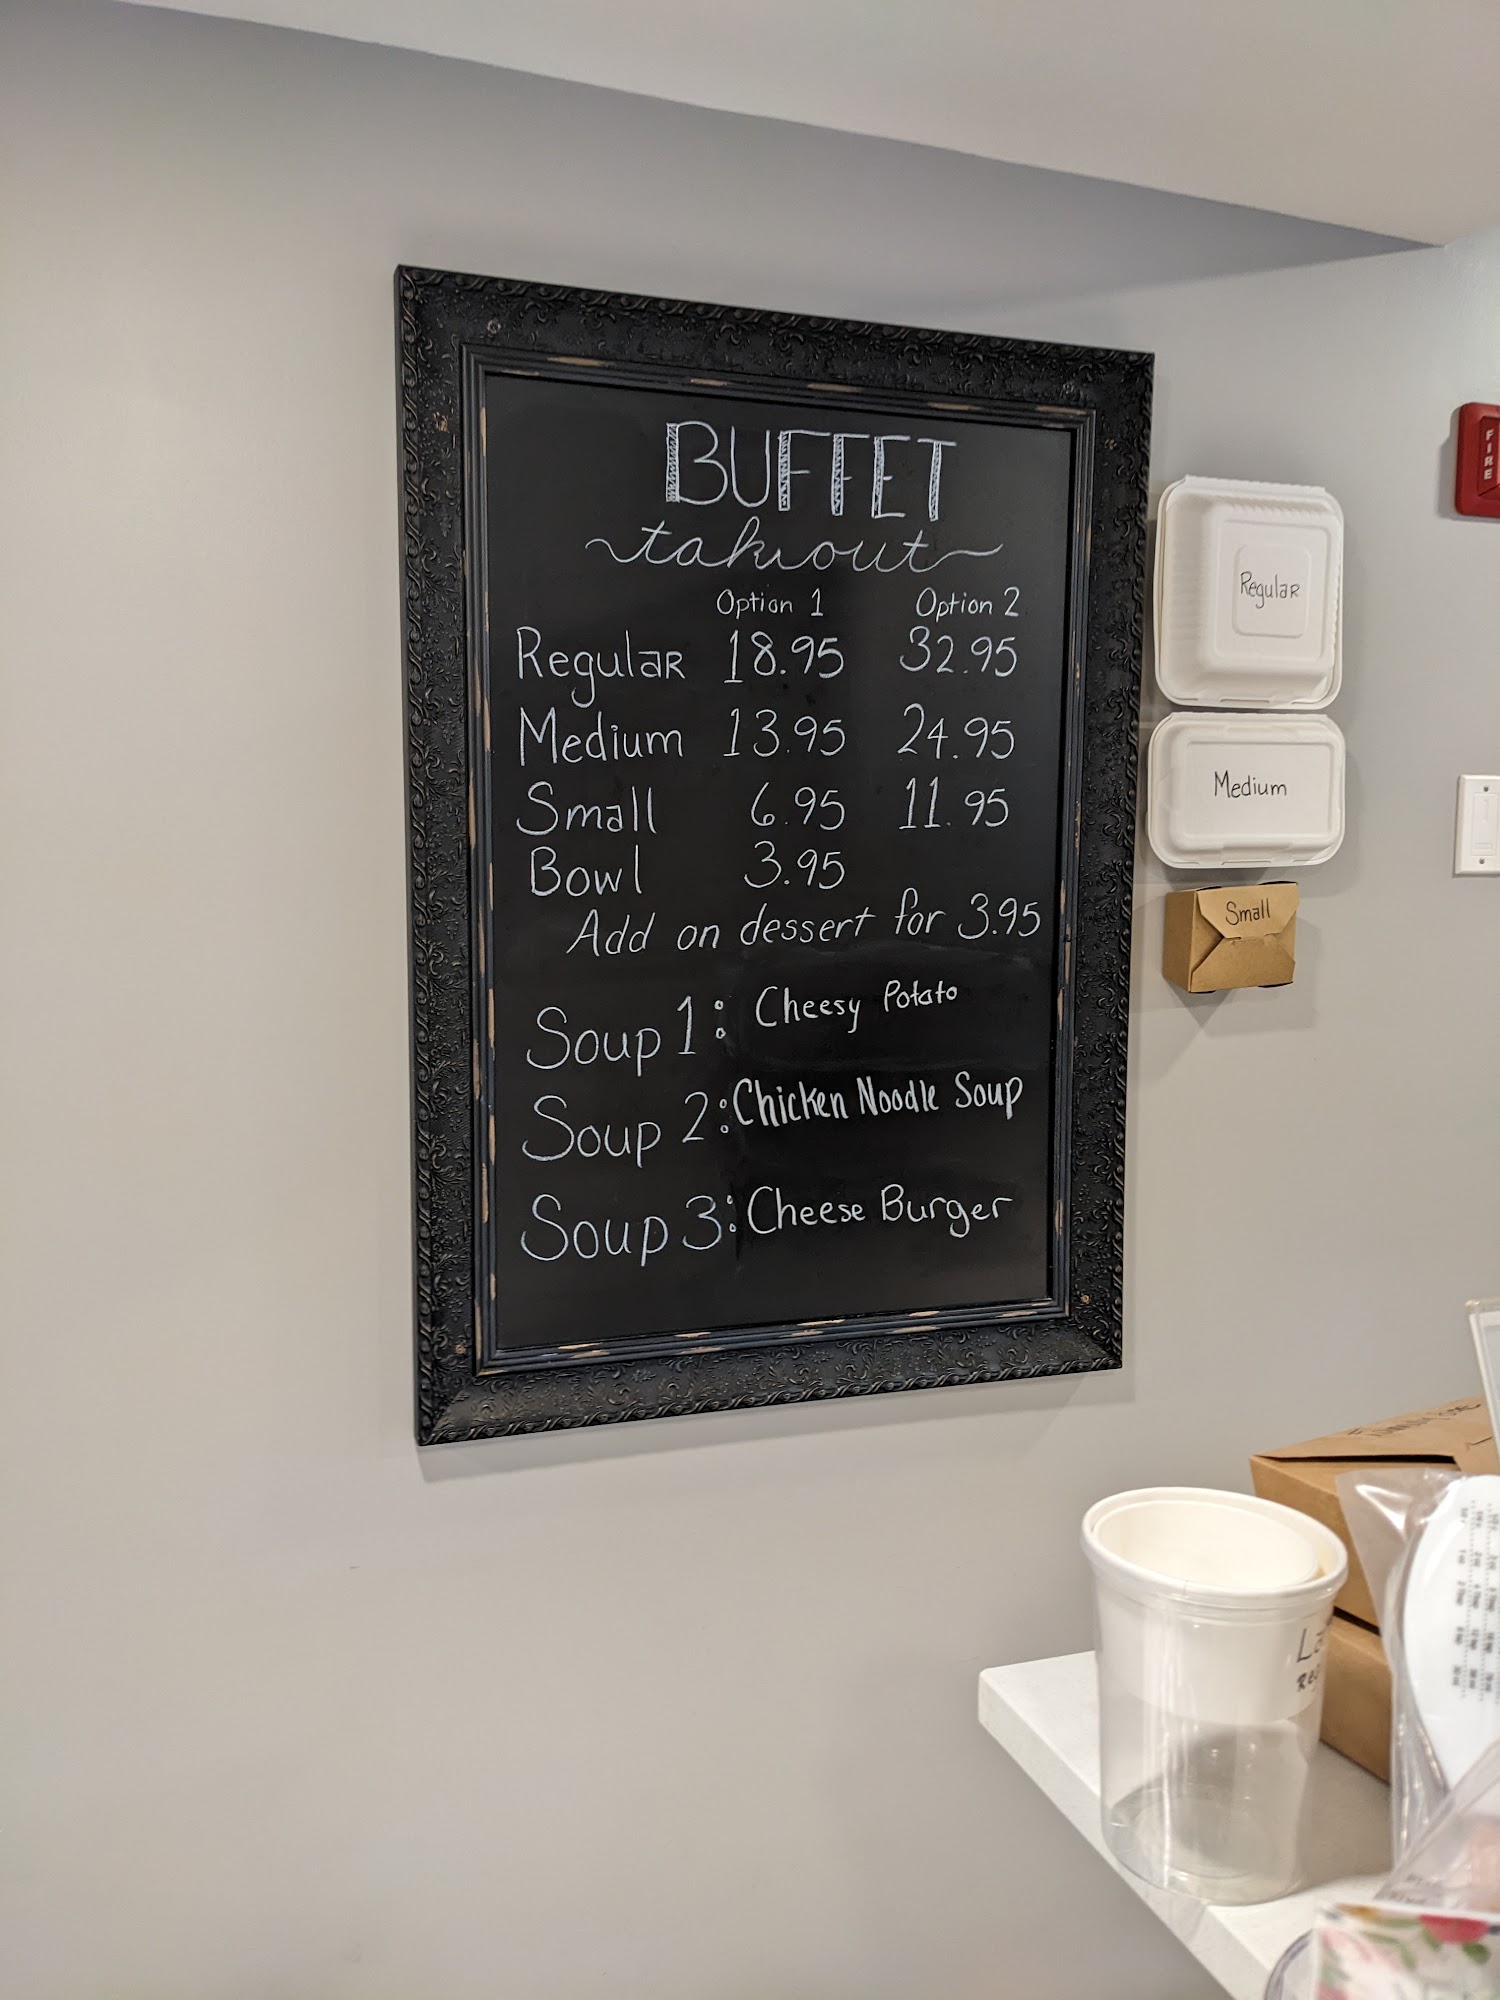 BUFFET
takeout
Option 1 Option 2
Regular 18.95 32.95
Medium 13.95 24.95
Small 6.95 11.95
Bowl 3.95
Add on dessert for 3.95
Soup 1: Cheesy Potato
Soup 2: Chicken Noodle Soup
Soup 3: Cheese Burger
Regular
Medium
Small
FIRE